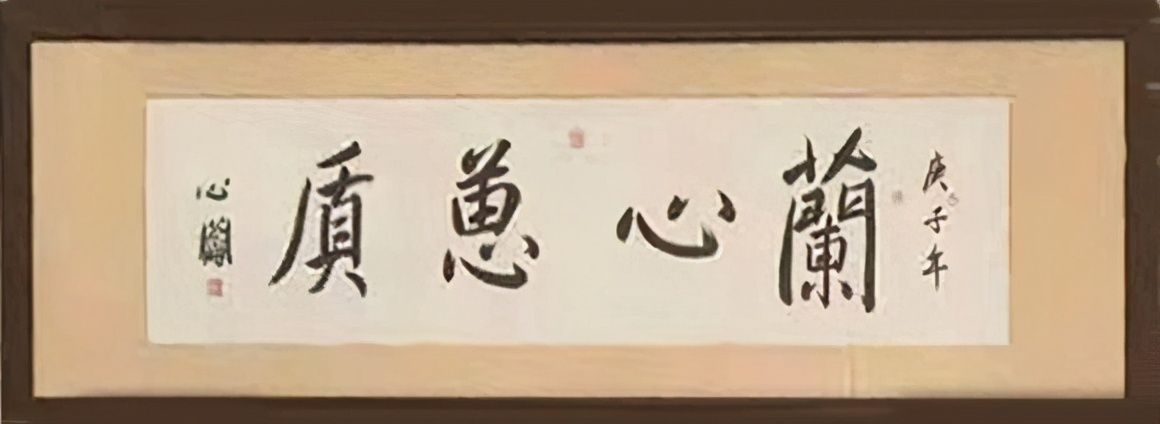 庚子年
蘭心蕙質
心